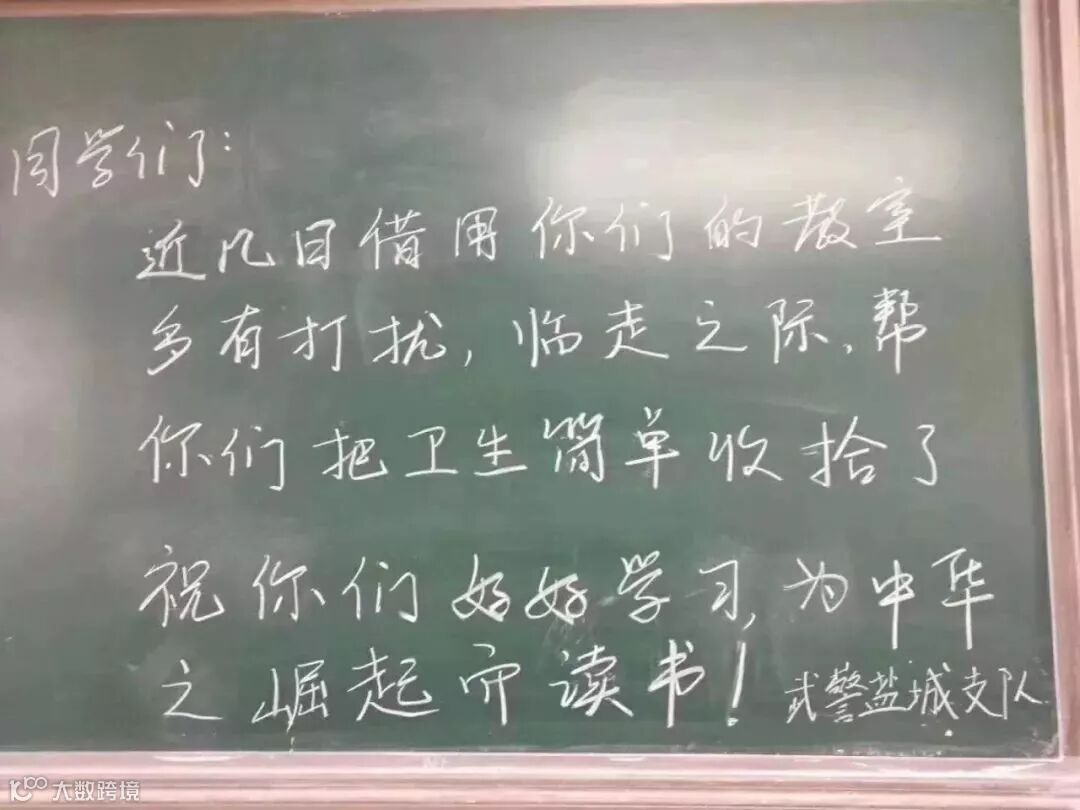 同学们：
近几日借用你们的教室
多有打扰，临走之际，帮
你们把卫生简单收拾了
祝你们好好学习，为中华
之崛起而读书！
武警盐城支队
大数跨境